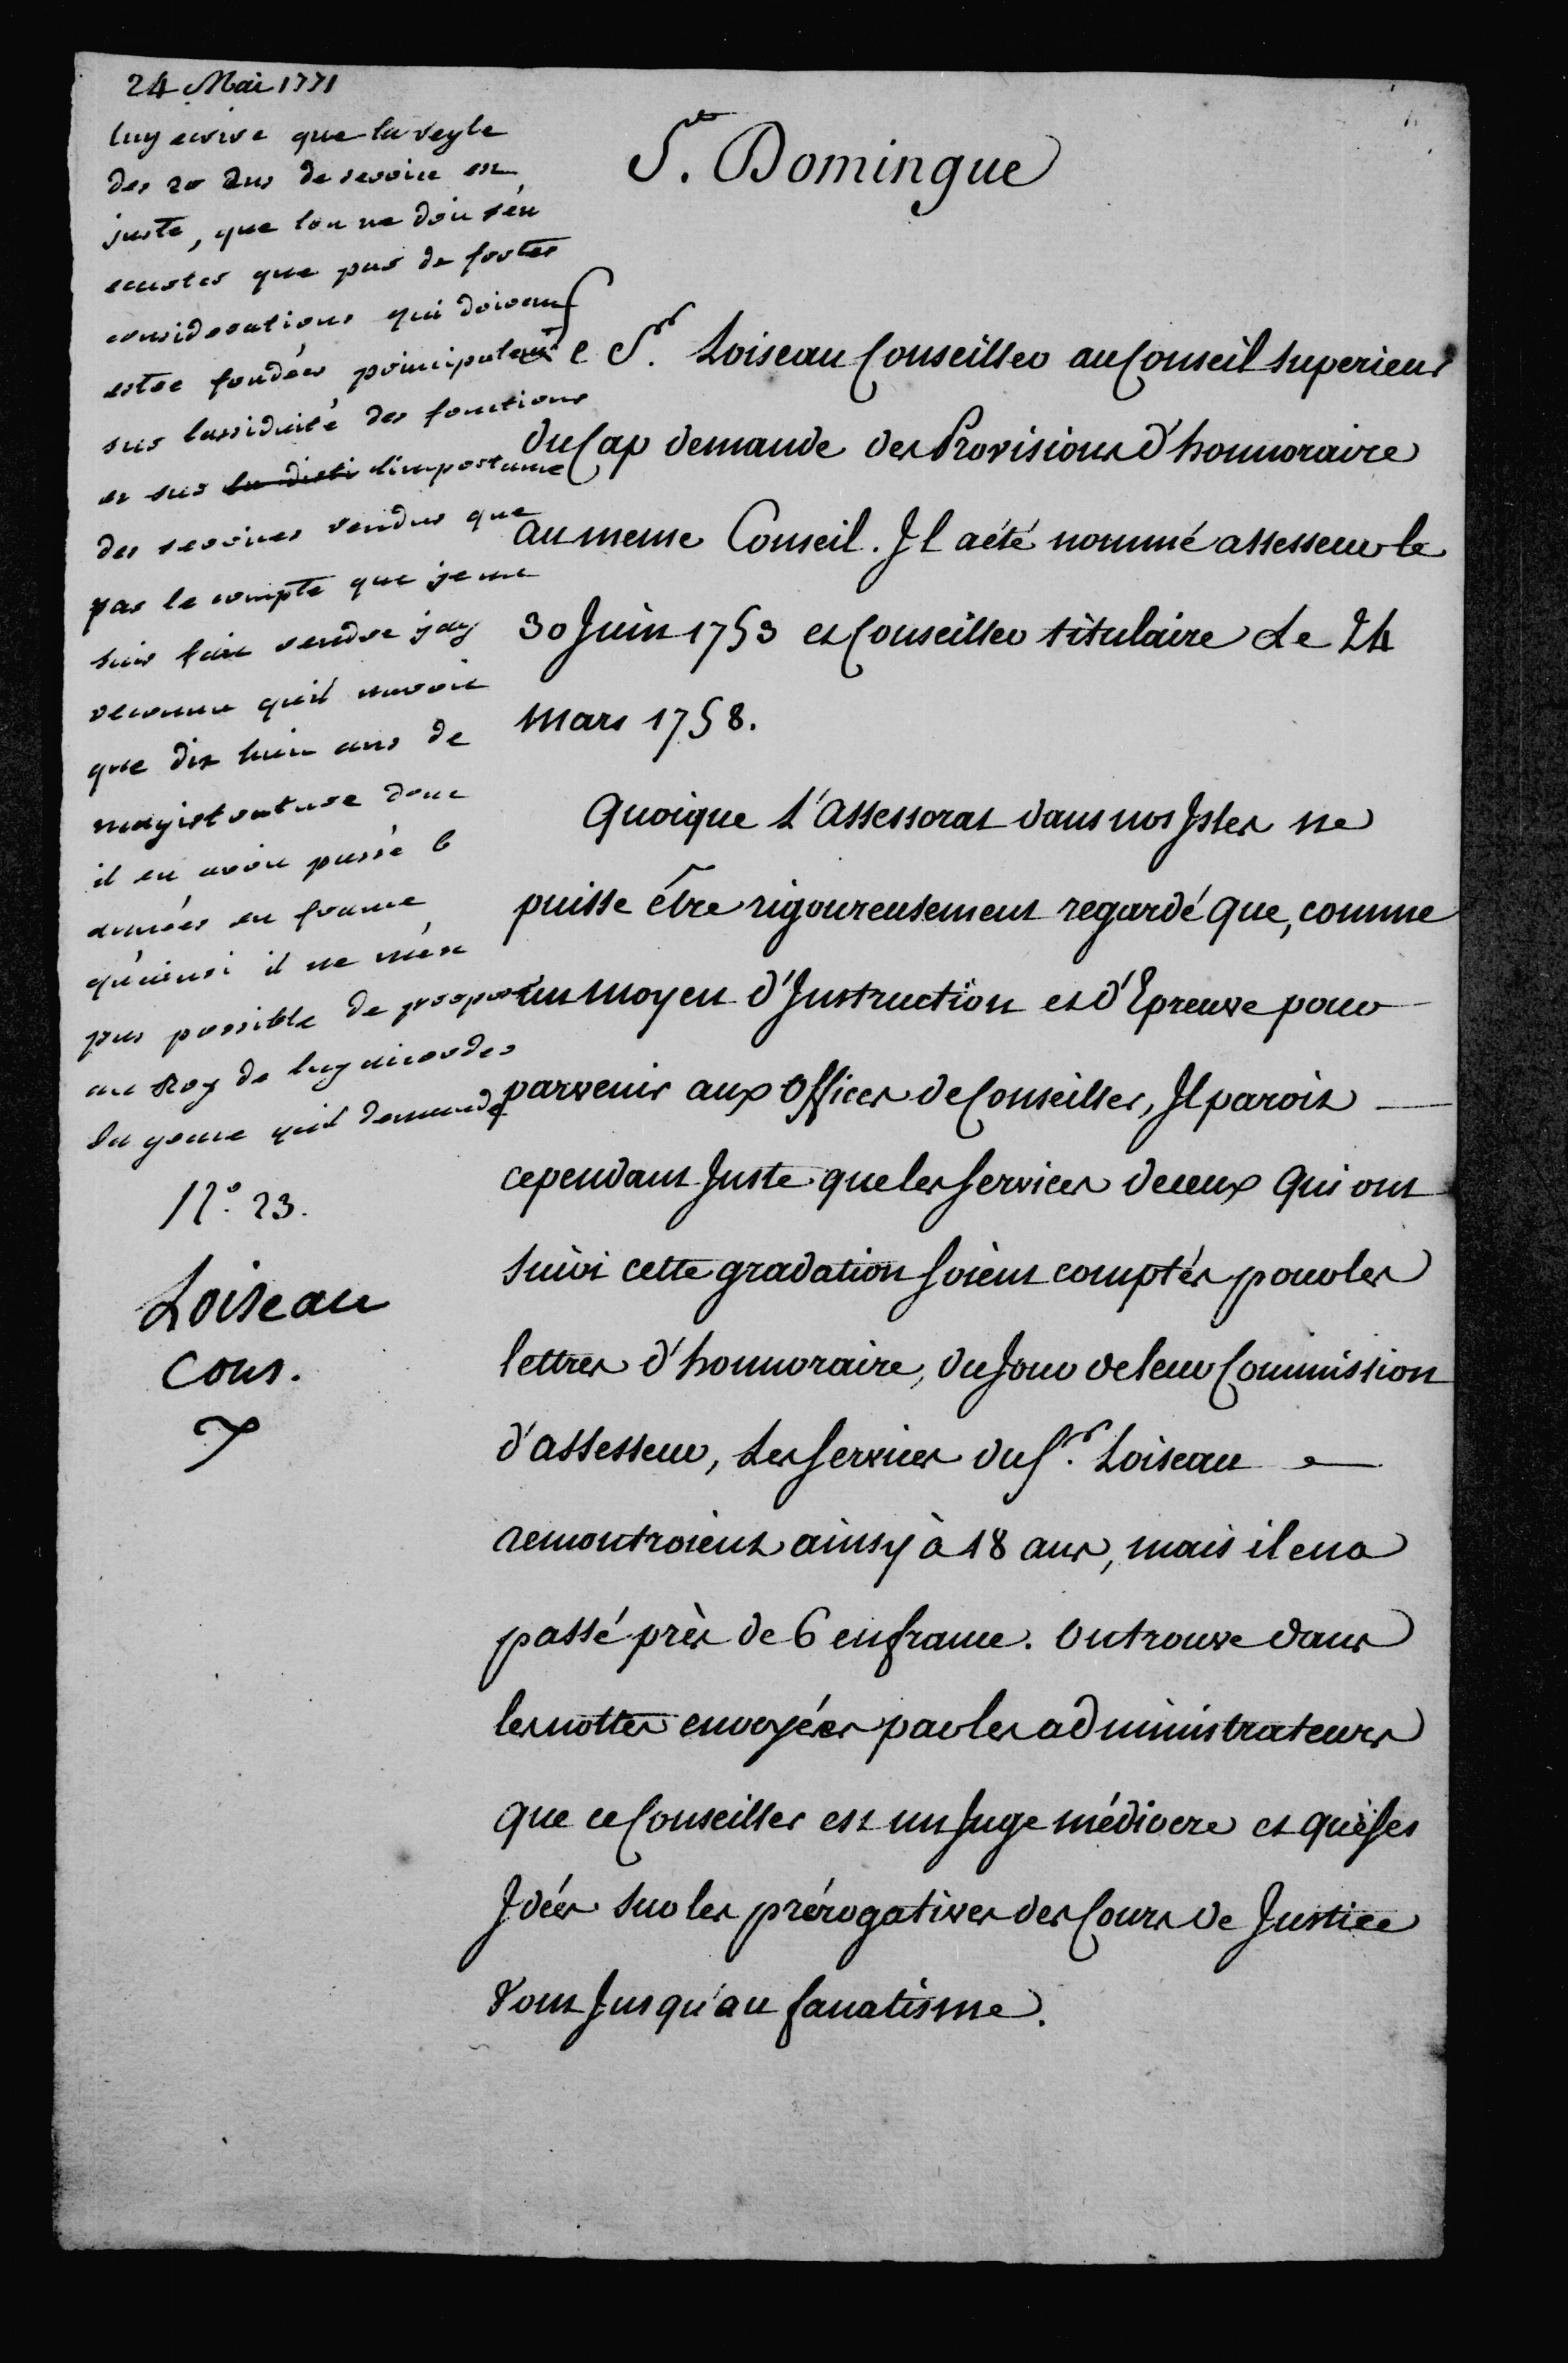 24 Mai 1771
luy ecrire que la regle
des 20 ans de service est
juste, que lon ne doit s'en
ecarter que par de fortes
considerations qui doivent
estre fondées principalemt
sur lassiduité des fonctions
et sur la disti limportance
des services rendus que
par le compte que je me
suis fait rendre j'ay
reconnu quil navoit
que dix huit ans de
magistrature dont
il en avoit passé 6
années en france
qu'ainsi il ne m'est
pas possible de proposer
au Roy de luy accorder
la grace quil demande
N.º 23.
Loiseau
Cons.
St. Domingue
Le Sr. Loiseau Conseiller au Conseil Superieur
du Cap demande des Provisions d'honnoraire
au meme Conseil. Il a été nommé assesseur le
30 Juin 1753 et Conseiller titulaire Le 24
Mars 1758.
Quoique L'assessorat dans nos Isles ne
puisse être rigoureusement regardé que, comme
un moyen d'Instruction et d'Epreuve pour
parvenir aux Offices de Conseiller, Il paroit
cependant Juste que les Services de ceux Qui ont
Suivi cette gradation Soient comptés pour les
lettres d'honnoraire, du Jour de leur Commission
d'assesseur, Les Services du Sr. Loiseau
remontroient ainsy à 18 ans, mais il en a
passé près de 6 en france. On trouve dans
les nottes envoyées par les administrateurs
que ce Conseiller est un Juge médiocre et que Ses
Idées Sur les prérogatives des Cours de Justice
Vont Jusqu'au fanatisme.